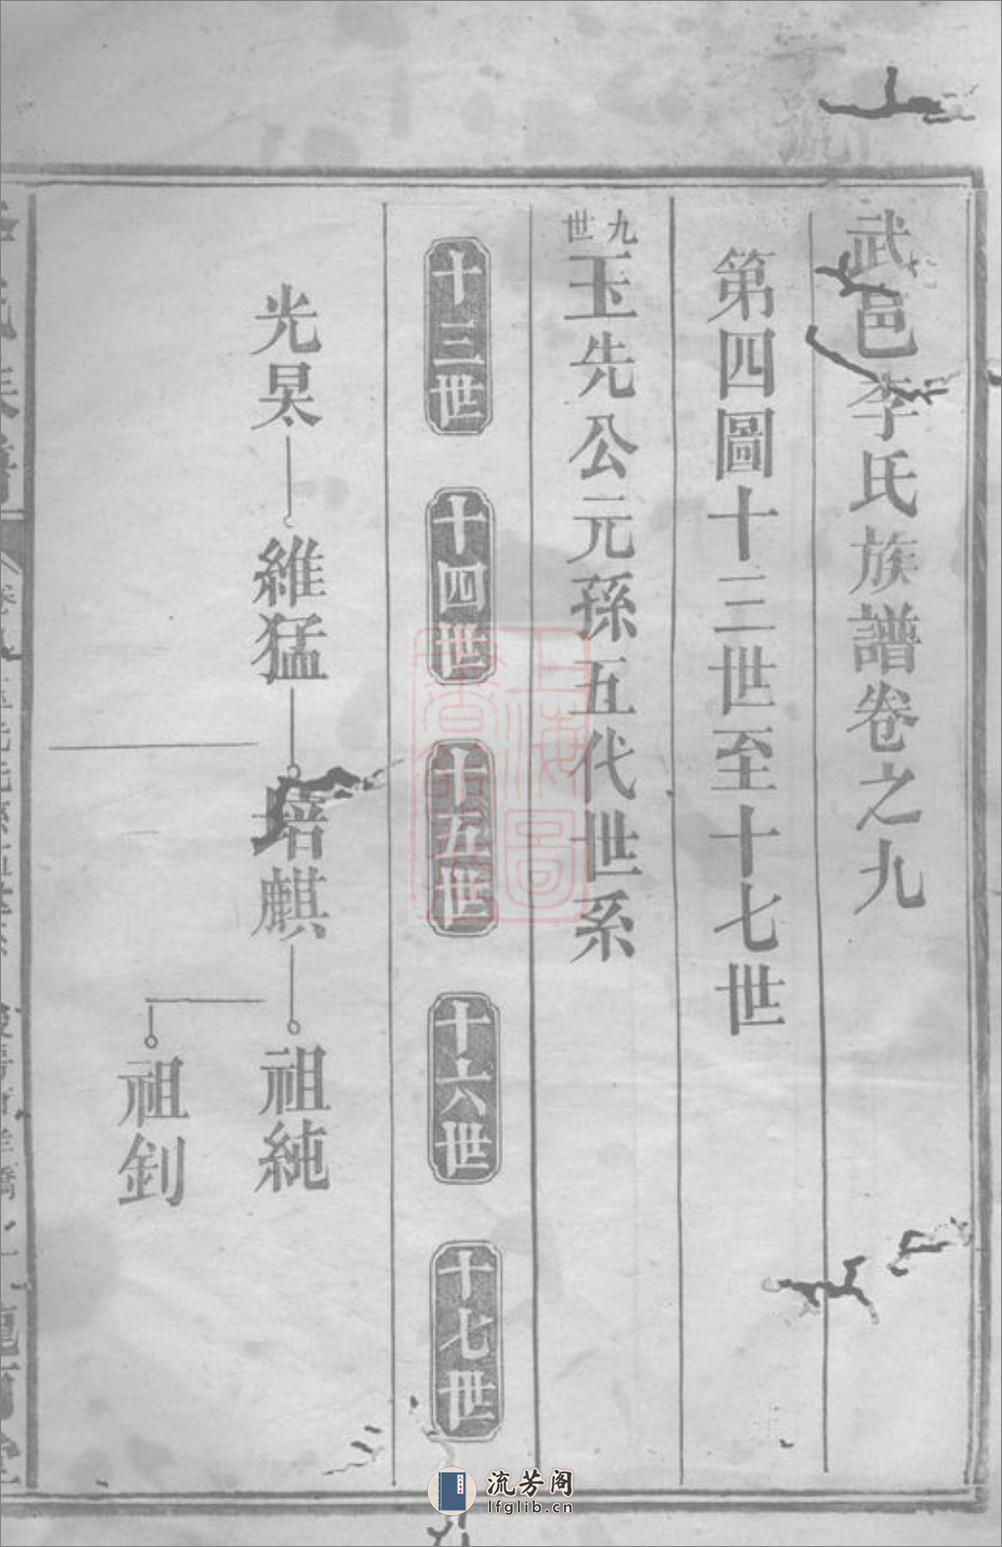 武邑李氏族譜卷之九
第四圖十三世至十七世
九世 玉先公元孫五代世系
十三世
十四世
十五世
十六世
十七世
光昊
維猛
培麒
祖純
祖釗
上海圖
流芳阁
lfglib.cn